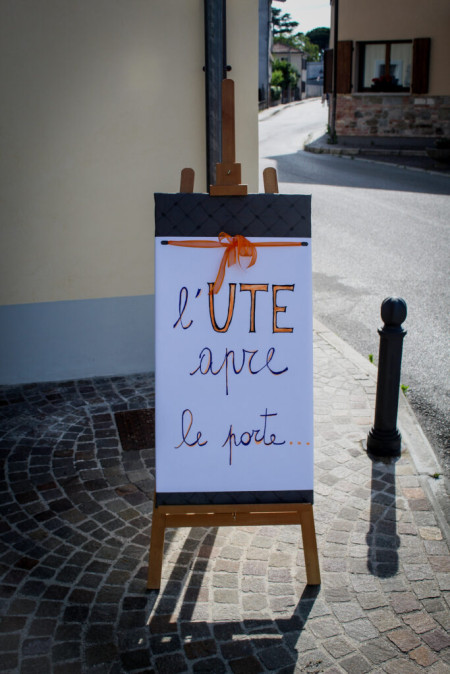 l'UTE
apre
le porte...